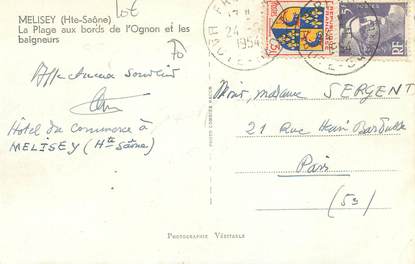 Lot
MELISEY (Hte-Saône)
La Plage aux bords de l'Ognon et les
baigneurs
70
Affectueux Souvenir
Hôtel du Commerce à
MELISEY (Hte Saône)
24
1954
POSTES
RF
Monsr, madame SERGENT
21 Rue Henri
Paris
(53)
PHOTOGRAPHIE VÉRITABLE